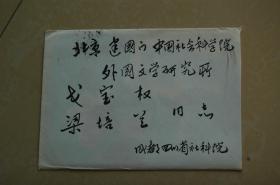 北京 建国门 中国社会科学院
外国文学研究所
戈宝权
梁培兰 同志
成都四川省社科院